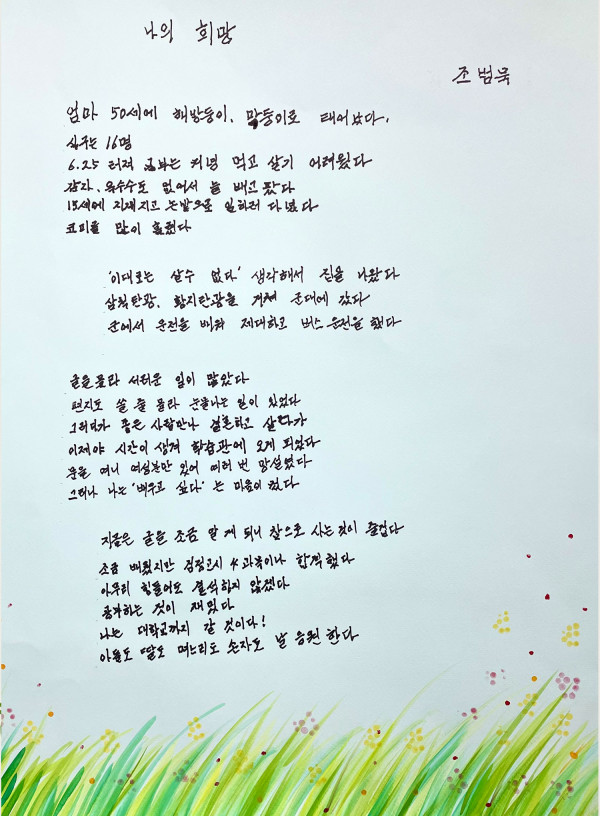 나의 희망
조범묵
엄마 50세에 해방둥이, 막둥이로 태어났다.
식구는 16명
6.25 터져 공부는 커녕 먹고 살기 어려웠다
감자, 옥수수도 없어서 늘 배고팠다
15세에 지게지고 논밭으로 일하러 다녔다
코피를 많이 흘렸다
'이대로는 살수 없다' 생각해서 집을 나왔다
삼척탄광, 황지탄광을 거쳐 군대에 갔다
군에서 운전을 배워 제대하고 버스 운전을 했다
글을 몰라 서러운 일이 많았다
편지도 쓸 줄 몰라 눈물나는 일이 있었다
그러다가 좋은 사람만나 결혼하고 살다가
이제야 시간이 생겨 학습관에 오게 되었다
문을 여니 여성분만 있어 여러 번 망설였다
그러나 나는 '배우고 싶다' 는 마음이 컸다
지금은 글을 조금 알게 되니 참으로 사는것이 즐겁다
조금 배웠지만 검정고시 4과목이나 합격했다
아무리 힘들어도 결석하지 않겠다
공부하는 것이 재밌다
나는 대학교까지 갈 것이다!
아들도 딸도 며느리도 손자도 날 응원한다